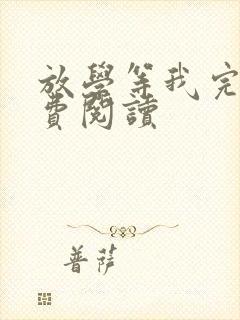 放學等我完
費閱讀
普薩